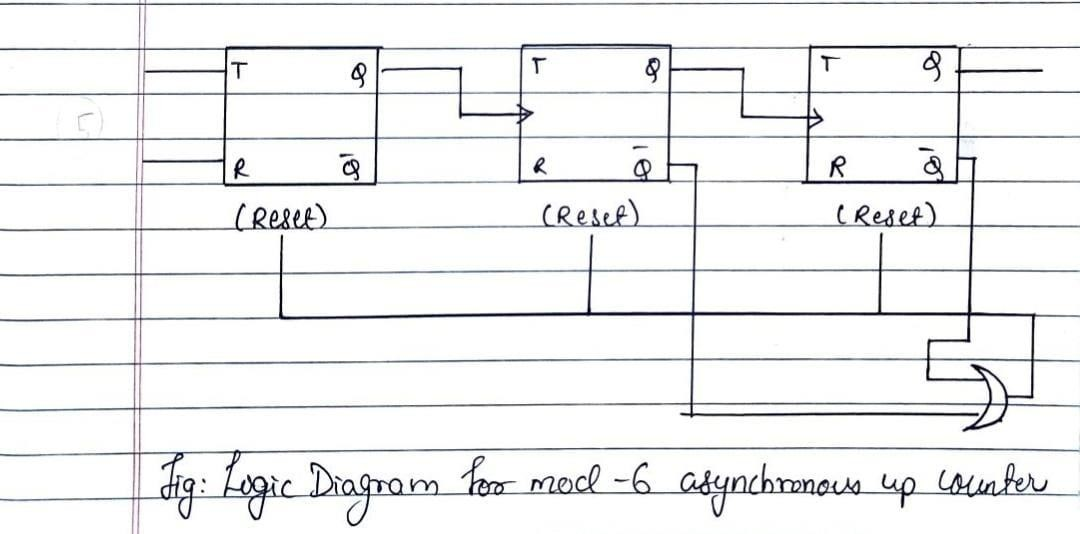 T Q T Q T Q
R Q̄ R Q̄ R Q̄
(Reset) (Reset) (Reset)
Fig: Logic Diagram for mod -6 asynchronous up counter